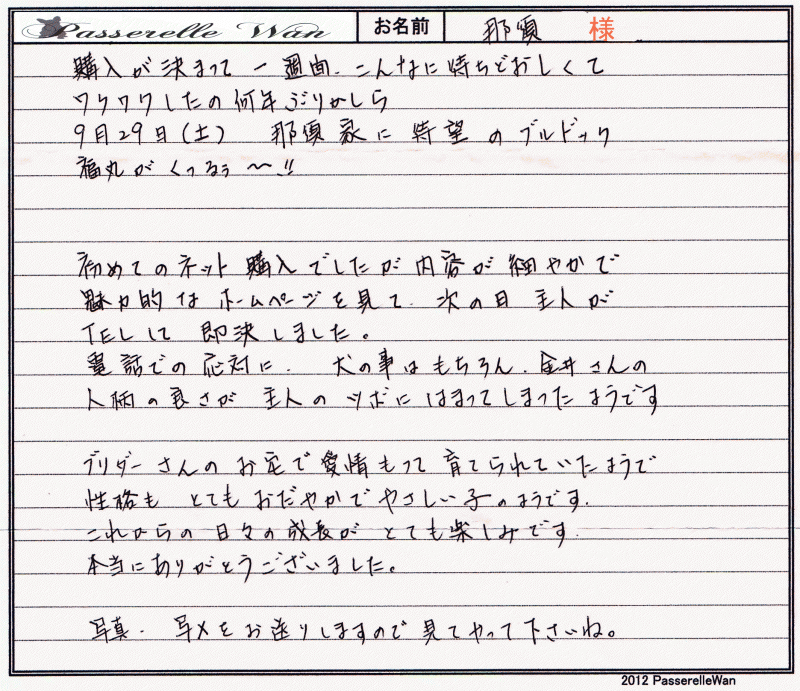 Passerelle Wan お名前 那須 様
購入が決まって一週間、こんなに待ちどおしくて
ワクワクしたの何年ぶりかしら
9月29日(土) 那須家に待望のブルドック
福丸がくるぅ〜!!
初めてのネット購入でしたが内容が細やかで
魅力的なホームページを見て、次の日主人が
TELして即決しました。
電話での応対に、犬の事はもちろん、金井さんの
人柄の良さが主人のツボにはまってしまったようです
ブリダーさんのお宅で愛情もって育てられていたようで
性格もとてもおだやかでやさしい子のようです。
これからの日々の成長がとても楽しみです。
本当にありがとうございました。
写真、写メをお送りしますので見てやって下さいね。
2012 PasserelleWan